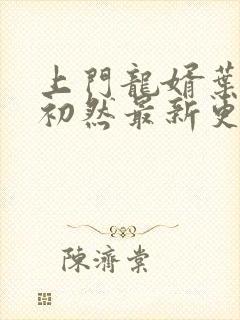 上門龍婿葉
初然最新更
陳濟棠